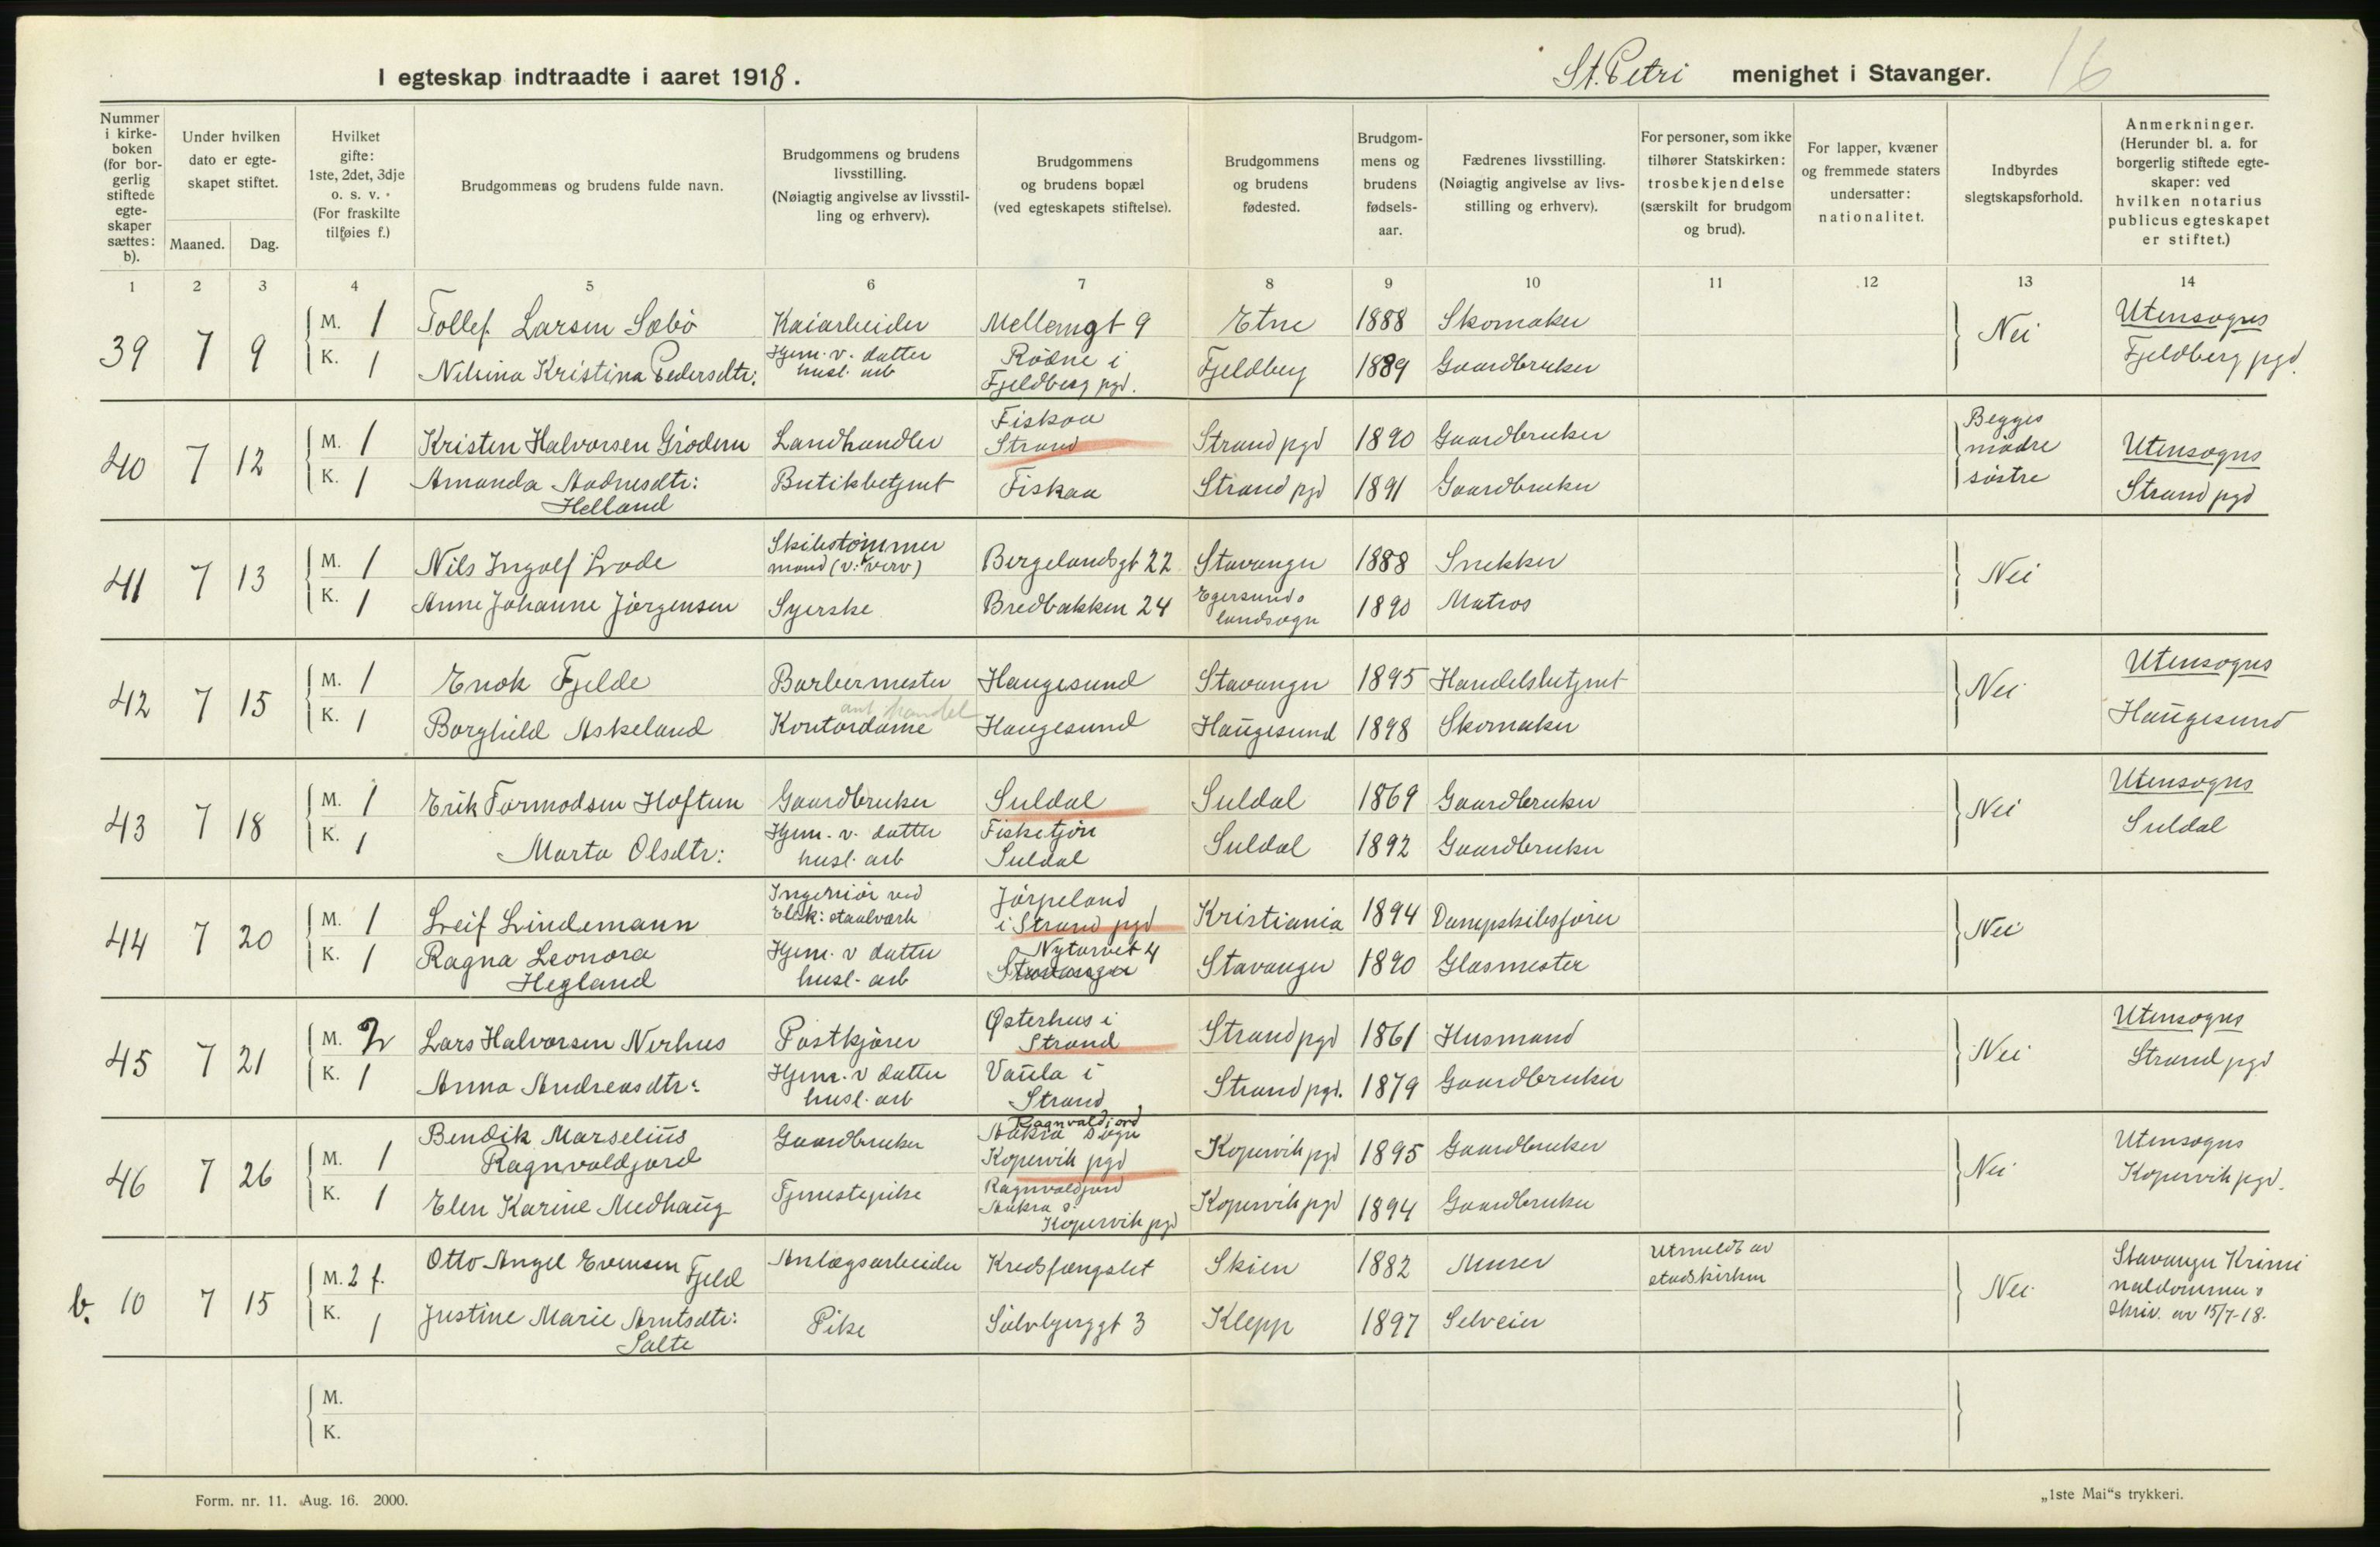 I egteskap indtraadte i aaret 1918.
St. Petri menighet i Stavanger.
16
Nummer i kirke-boken (for bor-gerlig stiftede egte-skaper sættes: b).
Under hvilken dato er egte-skapet stiftet.
Maaned. Dag.
Hvilket gifte: 1ste, 2det, 3dje o. s. v. (For fraskilte tilføies f.)
Brudgommens og brudens fulde navn.
Brudgommens og brudens livsstilling. (Nøiagtig angivelse av livsstil-ling og erhverv).
Brudgommens og brudens bopæl (ved egteskapets stiftelse).
Brudgommens og brudens fødested.
Brudgom-mens og brudens fødsels-aar.
Fædrenes livsstilling. (Nøiagtig angivelse av livs-stilling og erhverv).
For personer, som ikke tilhører Statskirken: trosbekjendelse (særskilt for brudgom og brud).
For lapper, kvæner og fremmede staters undersatter: nationalitet.
Indbyrdes slegtskapsforhold.
Anmerkninger. (Herunder bl. a. for borgerlig stiftede egte-skaper: ved hvilken notarius publicus egteskapet er stiftet.)
1 2 3 4 5 6 7 8 9 10 11 12 13 14
39 7 9 M. 1 Tollef Larsen Sæbö Kaiarbeider Mellemgt 9 Etne 1888 Skomaker Nei Utensogns Fjeldberg pgd.
K. 1 Nilsina Kristina Pedersdtr: Hjem. v. datter husl. arb Rödne i Fjeldberg pgd. Fjeldberg 1889 Gaardbruker
40 7 12 M. 1 Kristen Halvorsen Grödem Landhandler Fiskaa Strand Strand pgd 1890 Gaardbruker Begges mödre söstre Utensogns Strand pgd
K. 1 Amanda Aadnesdtr: Helland Butikbetjent Fiskaa Strand pgd 1891 Gaardbruker
41 7 13 M. 1 Nils Ingolf Lode Skibstömmer mand (v: verv) Bergelandsgt 22 Stavanger 1888 Snekker Nei
K. 1 Anne Johanne Jörgensen Syerske Bredbakken 24 Egersunds landsogn 1890 Matros
42 7 15 M. 1 Enok Fjelde Barbermester Haugesund Stavanger 1895 Handelsbetjent Nei Utensogns Haugesund
K. 1 Borghild Askeland Kontordame ant handel Haugesund Haugesund 1898 Skomaker
43 7 18 M. 1 Erik Tormodsen Hoftun Gaardbruker Suldal Suldal 1869 Gaardbruker Nei Utensogns Suldal
K. 1 Marta Olsdtr: Hjem. v. datter husl. arb Fisketjön Suldal Suldal 1892 Gaardbruker
44 7 20 M. 1 Leif Lindemann Ingeniör ved Elek: staalværk Jörpeland i Strand pgd Kristiania 1894 Dampskibsförer Nei
K. 1 Ragna Leonora Hegland Hjem. v datter husl. arb Nytorvet 4 Stavanger Stavanger 1890 Glasmester
45 7 21 M. 2 Lars Halvorsen Nerhus Postkjörer Østerhus i Strand Strand pgd 1861 Husmand Nei Utensogns Strand pgd
K. 1 Anna Andreasdtr: Hjem. v datter husl. arb Vaula i Strand Strand pgd. 1879 Gaardbruker
46 7 26 M. 1 Bendik Marselius Ragnvaldjord Gaardbruker Ragnvaldjord Aakra Sogn Kopervik pgd Kopervik pgd 1895 Gaardbruker Nei Utensogns Kopervik pgd.
K. 1 Elen Karine Medhaug Tjenestepike Ragnvaldjord Aakra s. Kopervik pgd Kopervik pgd 1894 Gaardbruker
b. 10 7 15 M. 2 f. Otto Angel Evensen Fjeld Anlægsarbeider Kredsfængslet Skien 1882 Murer Utmeldt av statskirken Nei Stavanger Krimi naldommer s skriv. av 15/7-18.
K. 1 Justine Marie Arntsdtr: Salte Pike Sölvberggt 3 Klepp 1897 Selveier
M.
K.
Form. nr. 11. Aug. 16. 2000.
„1ste Mai“s trykkeri.